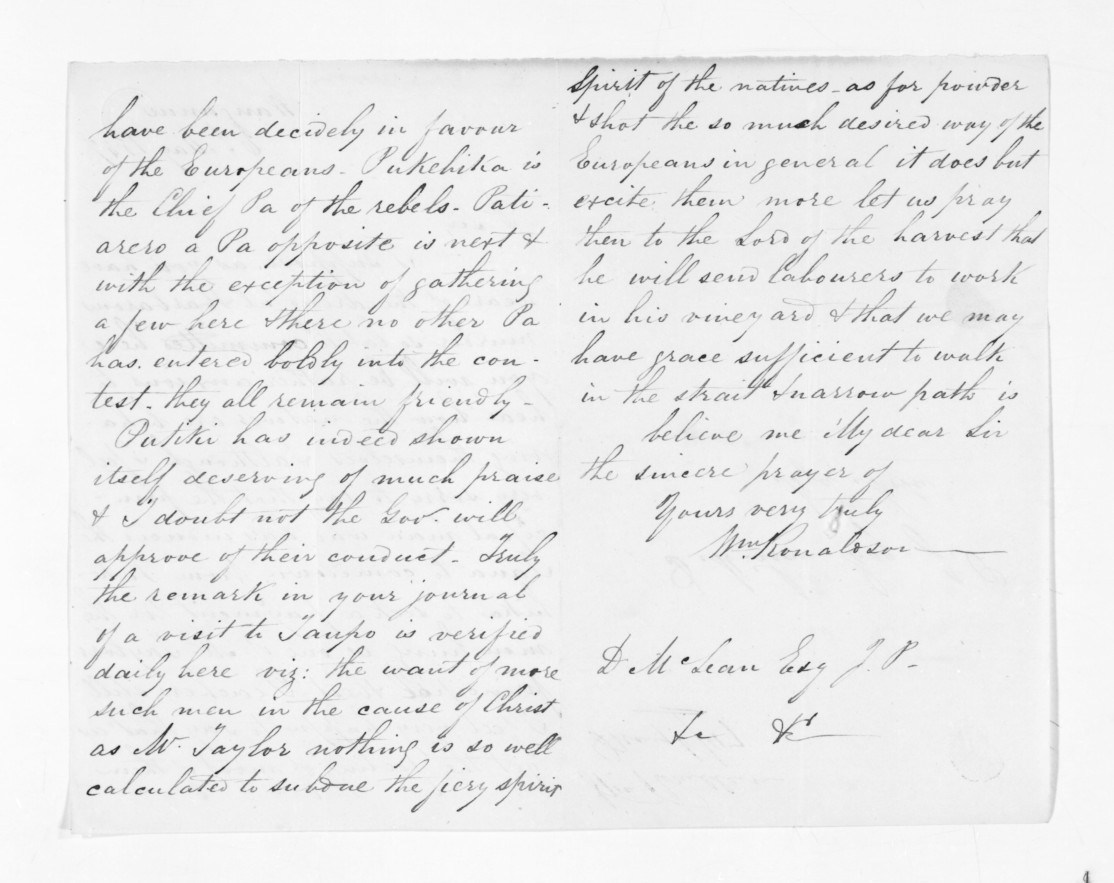 have been decidely in favour
of the Europeans - Pukehika is
the Chief Pa of the rebels - Pati-
arero a Pa opposite is next &
with the exception of gathering
a few here & there no other Pa
has entered boldly into the con-
test - they all remain friendly -
Putiki has indeed shown
itself deserving of much praise
& I doubt not the Gov. will
approve of their conduct - Truly
the remark in your journal
of a visit to Taupo is verified
daily here viz: the want of more
such men in the cause of Christ
as Mr. Taylor nothing is so well
calculated to subdue the fiery spirit
Spirit of the natives - as for powder
& shot the so much desired way of the
Europeans in general it does but
excite them more let us pray
then to the Lord of the harvest that
he will send Labourers to work
in his vineyard & that we may
have grace sufficient to walk
in the strait & narrow path is
believe me My dear Sir
the sincere prayer of
Yours very truly
Wm. Ronaldson
D McLean Esq J. P.
&c &c